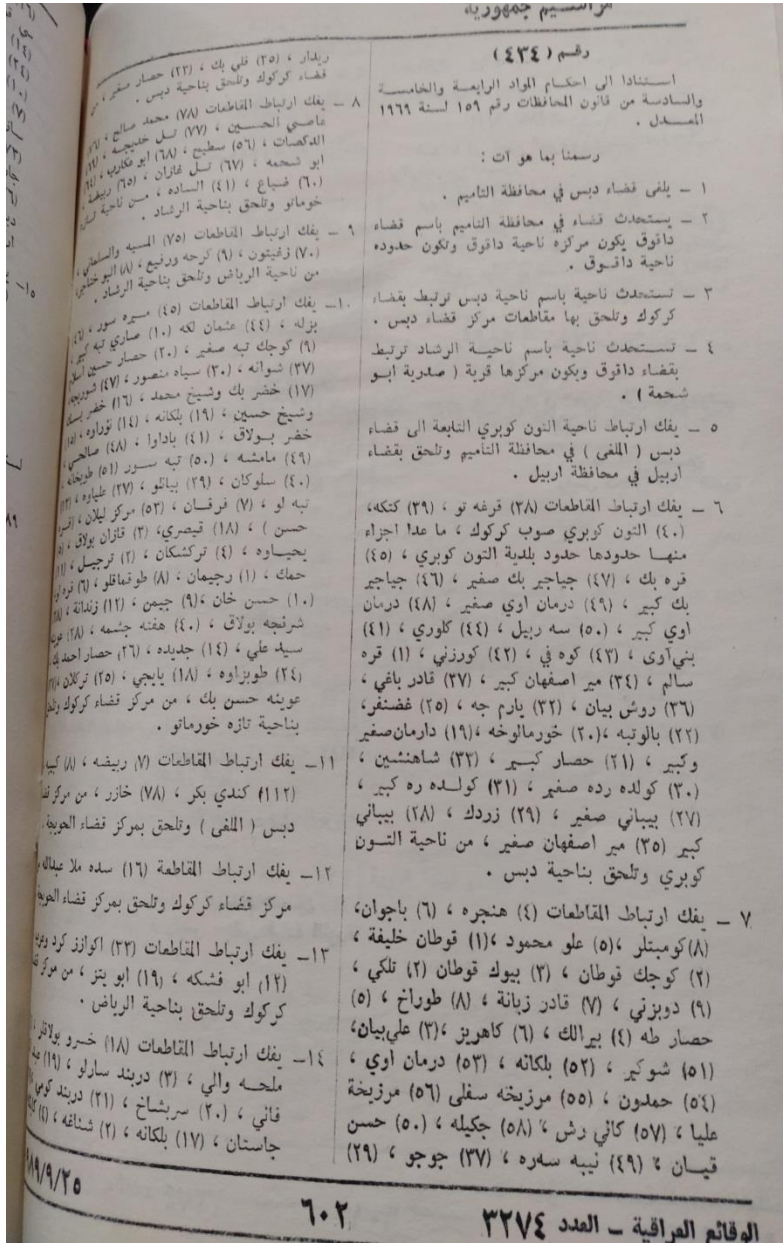 مرسوم جمهوري
رقم (٤٣٤)
استنادا الى احكام المواد الرابعة والخامسة
والسادسة من قانون المحافظات رقم ١٥٩ لسنة ١٩٦٩
المعـدل .
رسمنا بما هو آت :
١ ـ يلغى قضاء دبس في محافظة التاميم .
٢ ـ يستحدث قضاء في محافظة التاميم باسم قضاء
داقوق يكون مركزه ناحية داقوق وتكون حدوده
ناحية داقـوق .
٣ ـ تستحدث ناحية باسم ناحية دبس ترتبط بقضاء
كركوك وتلحق بها مقاطعات مركز قضاء دبس .
٤ ـ تستـحدث ناحية باسم ناحيـة الرشاد ترتبط
بقضاء داقوق ويكون مركزها قرية ( صدرية ابـو
شحمة ) .
٥ ـ يفك ارتباط ناحية التون كوبري التابعة الى قضاء
دبس ( الملغى ) في محافظة التاميم وتلحق بقضاء
اربيل في محافظة اربيل .
٦ ـ يفك ارتباط المقاطعات (٣٨) قرغه تو ، (٣٩) كتكه،
(٤٠) التون كوبري صوب كركوك ، ما عدا اجزاء
منهـا حدودها حدود بلدية التون كوبري ، (٤٥)
قره بك ، (٤٧) جياجير بك صغير ، (٤٦) جياجير
بك كبير ، (٤٩) درمان اوي صغير ، (٤٨) درمان
اوي كبير ، (٥٠) سه ربيل ، (٤٤) كلوري ، (٤١)
بني‌آوى ، (٤٣) كوه في ، (٤٢) كورزني ، (١) قره
سالم ، (٣٤) مير اصفهان كبير ، (٣٧) قادر باغي ،
(٣٦) روش بيان ، (٣٢) يارم جه ، (٢٥) غضنفر،
(٢٢) بالوتبه ،(٢٠) خورمالوخه ،(١٩) دارمان‌صغير
وكبير ، (٢١) حصار كبـير ، (٣٣) شاهنشين ،
(٣٠) كولده رده صغير ، (٣١) كولـده ره كبير ،
(٢٧) بيباني صغير ، (٢٩) زردك ، (٢٨) بيباني
كبير (٣٥) مير اصفهان صغير ، من ناحية التـون
كوبري وتلحق بناحية دبس .
٧ ـ يفك ارتباط المقاطعات (٤) هنجره ، (٦) باجوان،
(٨)كومبتلر ،(٥) علو محمود ،(١) قوطان خليفة ،
(٢) كوجك قوطان ، (٣) بيوك قوطان (٢) تلكي ،
(٩) دوبزني ، (٧) قادر زبانة ، (٨) طوراخ ، (٥)
حصار طه (٤) بيرالك ، (٦) كاهريز ،(٣) علي‌بيان،
(٥١) شوكير ، (٥٢) بلكانه ، (٥٣) درمان اوي ،
(٥٤) حمدون ، (٥٥) مرزيخه سفلى (٥٦) مرزيخة
عليا ، (٥٧) كاني رش ، (٥٨) جكيله ، (٥٠) حسن
قيـان ، (٤٩) نيبه سەره ، (٣٧) جوجو ، (٢٩)
ريدار ، (٣٥) قلي بك ، (٢٢) حصار صغير ، من
قضاء كركوك وتلحق بناحية دبس .
٨ ـ يفك ارتباط المقاطعات (٧٨) محمد صالح ،
عاصي الحسـين ، (٧٧) تـل خديجـه ،
الدكصات ، (٥٦) سطيح ، (٦٨) ابو عكارب ،
ابو شحمه ، (٦٧) تـل غازان ، (٦٥) ربيضة ،
(٦٠) ضباع ، (٤١) الساده ، مـن ناحية
خوماتو وتلحق بناحية الرشاد .
٩ ـ يفك ارتباط المقاطعات (٧٥) المسبه والسلماني ،
(٧٠) زغيتون ، (٩) كرحه ورفيع ، (٨)
من ناحية الرياض وتلحق بناحية الرشاد .
١٠ـ يفك ارتباط المقاطعات (٤٥) سيره سور ،
بزله ، (٤٤) عثمان لكه (١٠) صاري تبه كبير ،
(٩) كوجك تبه صغير ، (٢٠) حصار حسين
(٣٧) شوانه ، (٣٠) سياه منصور ، (٤٧) شوريجه
(١٧) خضر بك وشيخ محمد ، (١٦) خضر بـك
وشيخ حسين ، (١٩) بلكانه ، (١٤) نوراوه ،
خضر بـولاق ، (٤١) باداوا ، (٤٨) صالحي ،
(٤٩) مامشه ، (٥٠) تبه سـور (٥١) طوبخانه
(٤٠) سلوكان ، (٣٩) بيانلو ، (٢٧) علياوه ،
تبه لو ، (٧) فرقـان ، (٥٣) مركز ليلان ،
حسن ) ، (١٨) قيصري، (٣) قازان بولاق ،
يحيـاوه ، (٤) تركشكان ، (٢) ترجيـل ،
حمك ، (١) رجيمان ، (٨) طوقماقلو ، (٦)
(١٠) حسن خان ،(٩) جيمن ، (١٢) زندانة ،
شرنجه بولاق ، (٤٠) هفته جشمه ، (٢٨)
سيد علي ، (١٤) جديده ، (٢٦) حصار احمد بك
(٢٤) طوبزاوه ، (١٨) يايجي ، (٢٥) تركلان ،
عوينه حسن بك ، من مركز قضاء كركوك وتلحق
بناحية تازه خورماتو .
١١ـ يفك ارتباط المقاطعات (٧) ربيضه ، (٨) كبيبه
(١١٢) كندي بكر ، (٧٨) خازر ، من مركز
دبس ( الملغى ) وتلحق بمركز قضاء الحويجة .
١٢ـ يفك ارتباط المقاطعة (١٦) سده ملا عبدالله
مركز قضاء كركوك وتلحق بمركز قضاء الحويجة
١٣ـ يفك ارتباط المقاطعات (٢٣) اكوازز كرد
(١٢) ابو فشكه ، (١٩) ابو يتز ، من مركز
كركوك وتلحق بناحية الرياض .
١٤ـ يفك ارتباط المقاطعات (١٨) خسرو بولاقلر ،
ملحـه والي ، (٣) دربند سارلو ، (١٩)
قاني ، (٢٠) سربشاخ ، (٢١) دربند كومي
جاستان ، (١٧) بلكانه ، (٢) شناغه ، (٤)
الوقائع العراقية ـ العدد ٣٢٧٤
٦٠٢
٩٨٩/٩/٢٥